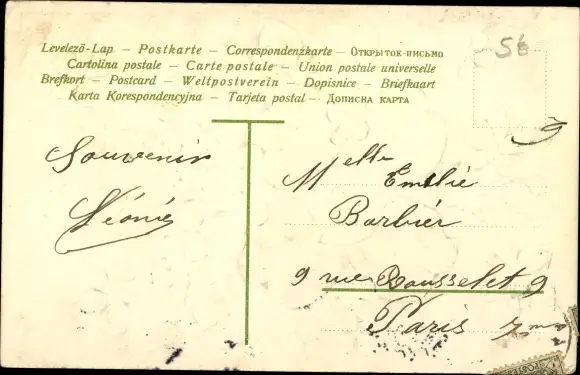 Levelező-Lap – Postkarte – Correspondenzkarte – Открыток-письмо
Cartolina postale – Carte postale – Union postale universelle
Brefkort – Postcard – Weltpostverein – Dopisnice – Briefkaart
Karta Korespondencyjna – Tarjeta postal – Дописна карта
Souvenir
Léonie
Melle Emilie
Barbier
9 rue Rousselet 9
Paris 7me
POSTES